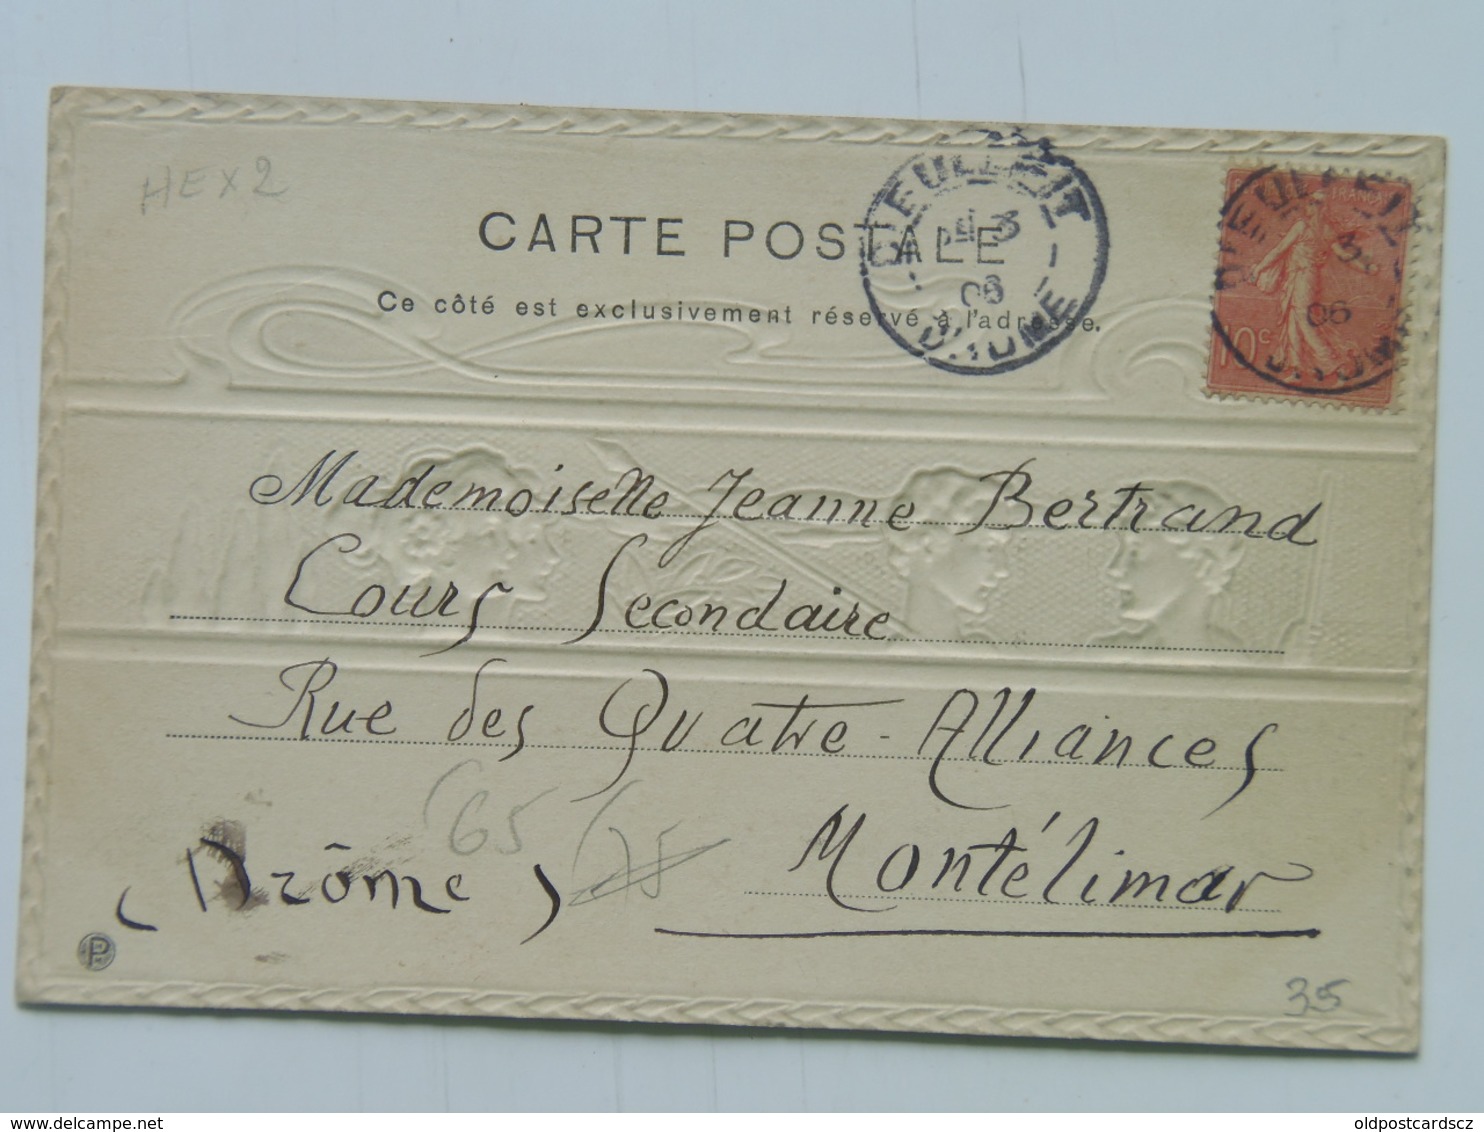 HEX2
CARTE POSTALE
Ce côté est exclusivement réservé à l'adresse.
DIEULEFIT
3
06
DROME
DIEULEFIT
3
06
DROME
10c
Mademoiselle Jeanne Bertrand
Cours Secondaire
Rue des Quatre-Alliances
65
75
Montélimar
(Drôme)
35
www.delcampe.net
oldpostcardscz